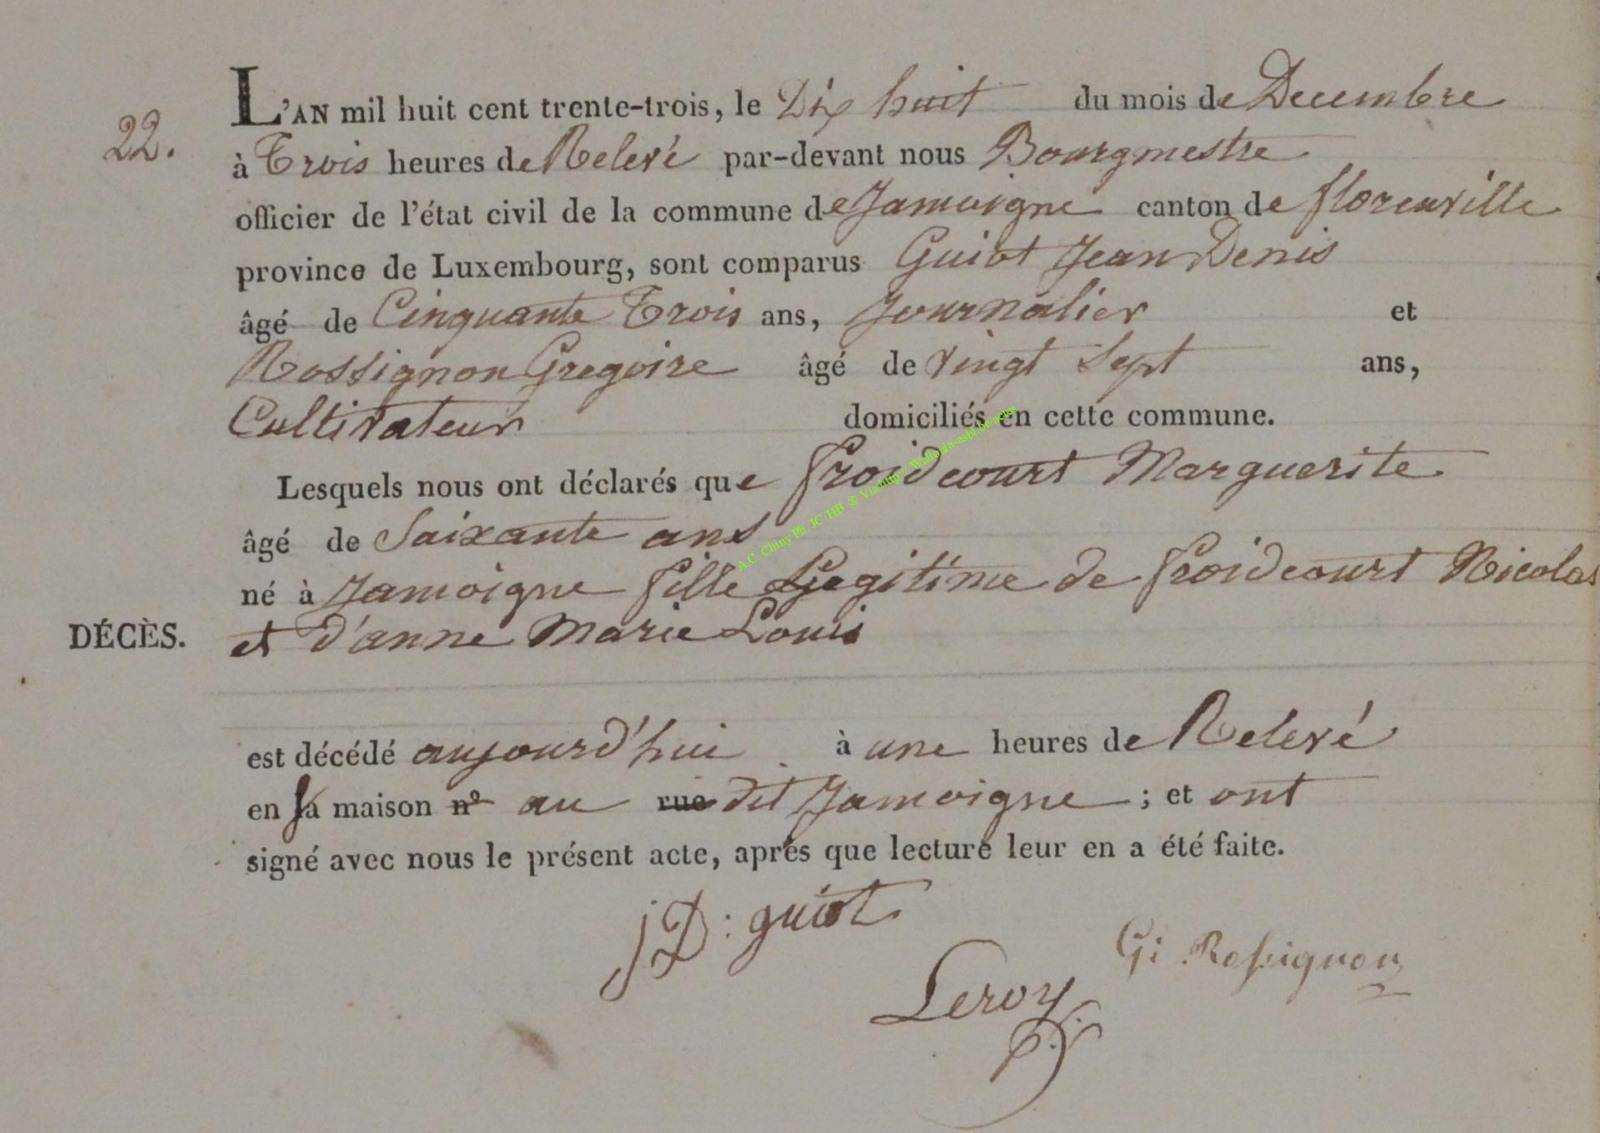 22.
L'AN mil huit cent trente-trois, le Dix huit du mois de Decembre
à Trois heures de Relevé par-devant nous Bourgmestre
officier de l'état civil de la commune de Jamoigne canton de florenville
province de Luxembourg, sont comparus Guiot Jean Denis
âgé de Cinquante Trois ans, Journalier et
Rossignon Gregoire âgé de vingt Sept ans,
Cultivateur domiciliés en cette commune.
Lesquels nous ont déclarés que froidcourt Marguerite
âgé de Saixante ans
né à Jamoigne fille Legitime de froidcourt Nicolas
DÉCÈS. et d'anne Marie Louis
est décédé aujourd'hui à une heures de Relevé
en sa maison nº au rue dit Jamoigne ; et ont
signé avec nous le présent acte, après que lecture leur en a été faite.
JD: guiot
Gi Rossignon
Leroy